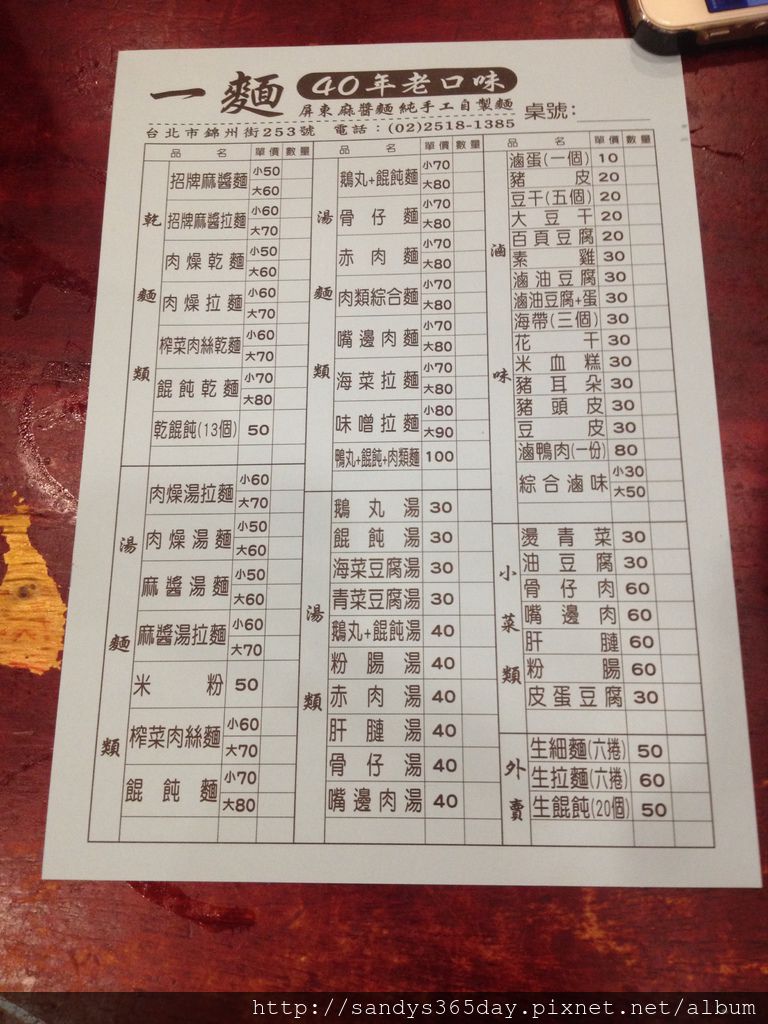 一麵 40年老口味
屏東麻醬麵純手工自製麵 桌號:
台北市錦州街253號 電話:(02)2518-1385
品名 單價 數量
乾麵類
招牌麻醬麵 小50 大60
招牌麻醬拉麵 小60 大70
肉燥乾麵 小50 大60
肉燥拉麵 小60 大70
榨菜肉絲乾麵 小60 大70
餛飩乾麵 小70 大80
乾餛飩(13個) 50
湯麵類
肉燥湯拉麵 小60 大70
肉燥湯麵 小50 大60
麻醬湯麵 小50 大60
麻醬湯拉麵 小60 大70
米粉 50
榨菜肉絲麵 小60 大70
餛飩麵 小70 大80
品名 單價 數量
湯麵類
鵝丸+餛飩麵 小70 大80
骨仔麵 小70 大80
赤肉麵 小70 大80
肉類綜合麵 小70 大80
嘴邊肉麵 小70 大80
海菜拉麵 小70 大80
味噌拉麵 小80 大90
鴨丸+餛飩+肉類麵 100
湯類
鵝丸湯 30
餛飩湯 30
海菜豆腐湯 30
青菜豆腐湯 30
鵝丸+餛飩湯 40
粉腸湯 40
赤肉湯 40
肝膁湯 40
骨仔湯 40
嘴邊肉湯 40
品名 單價 數量
滷味
滷蛋(一個) 10
豬皮 20
豆干(五個) 20
大豆干 20
百頁豆腐 20
素雞 30
滷油豆腐 30
滷油豆腐+蛋 30
海帶(三個) 30
花干 30
米血糕 30
豬耳朵 30
豬頭皮 30
豆皮 30
滷鴨肉(一份) 80
綜合滷味 小30 大50
小菜類
燙青菜 30
油豆腐 30
骨仔肉 60
嘴邊肉 60
肝膁 60
粉腸 60
皮蛋豆腐 30
外賣
生細麵(六捲) 50
生拉麵(六捲) 60
生餛飩(20個) 50
http://sandys365day.pixnet.net/album